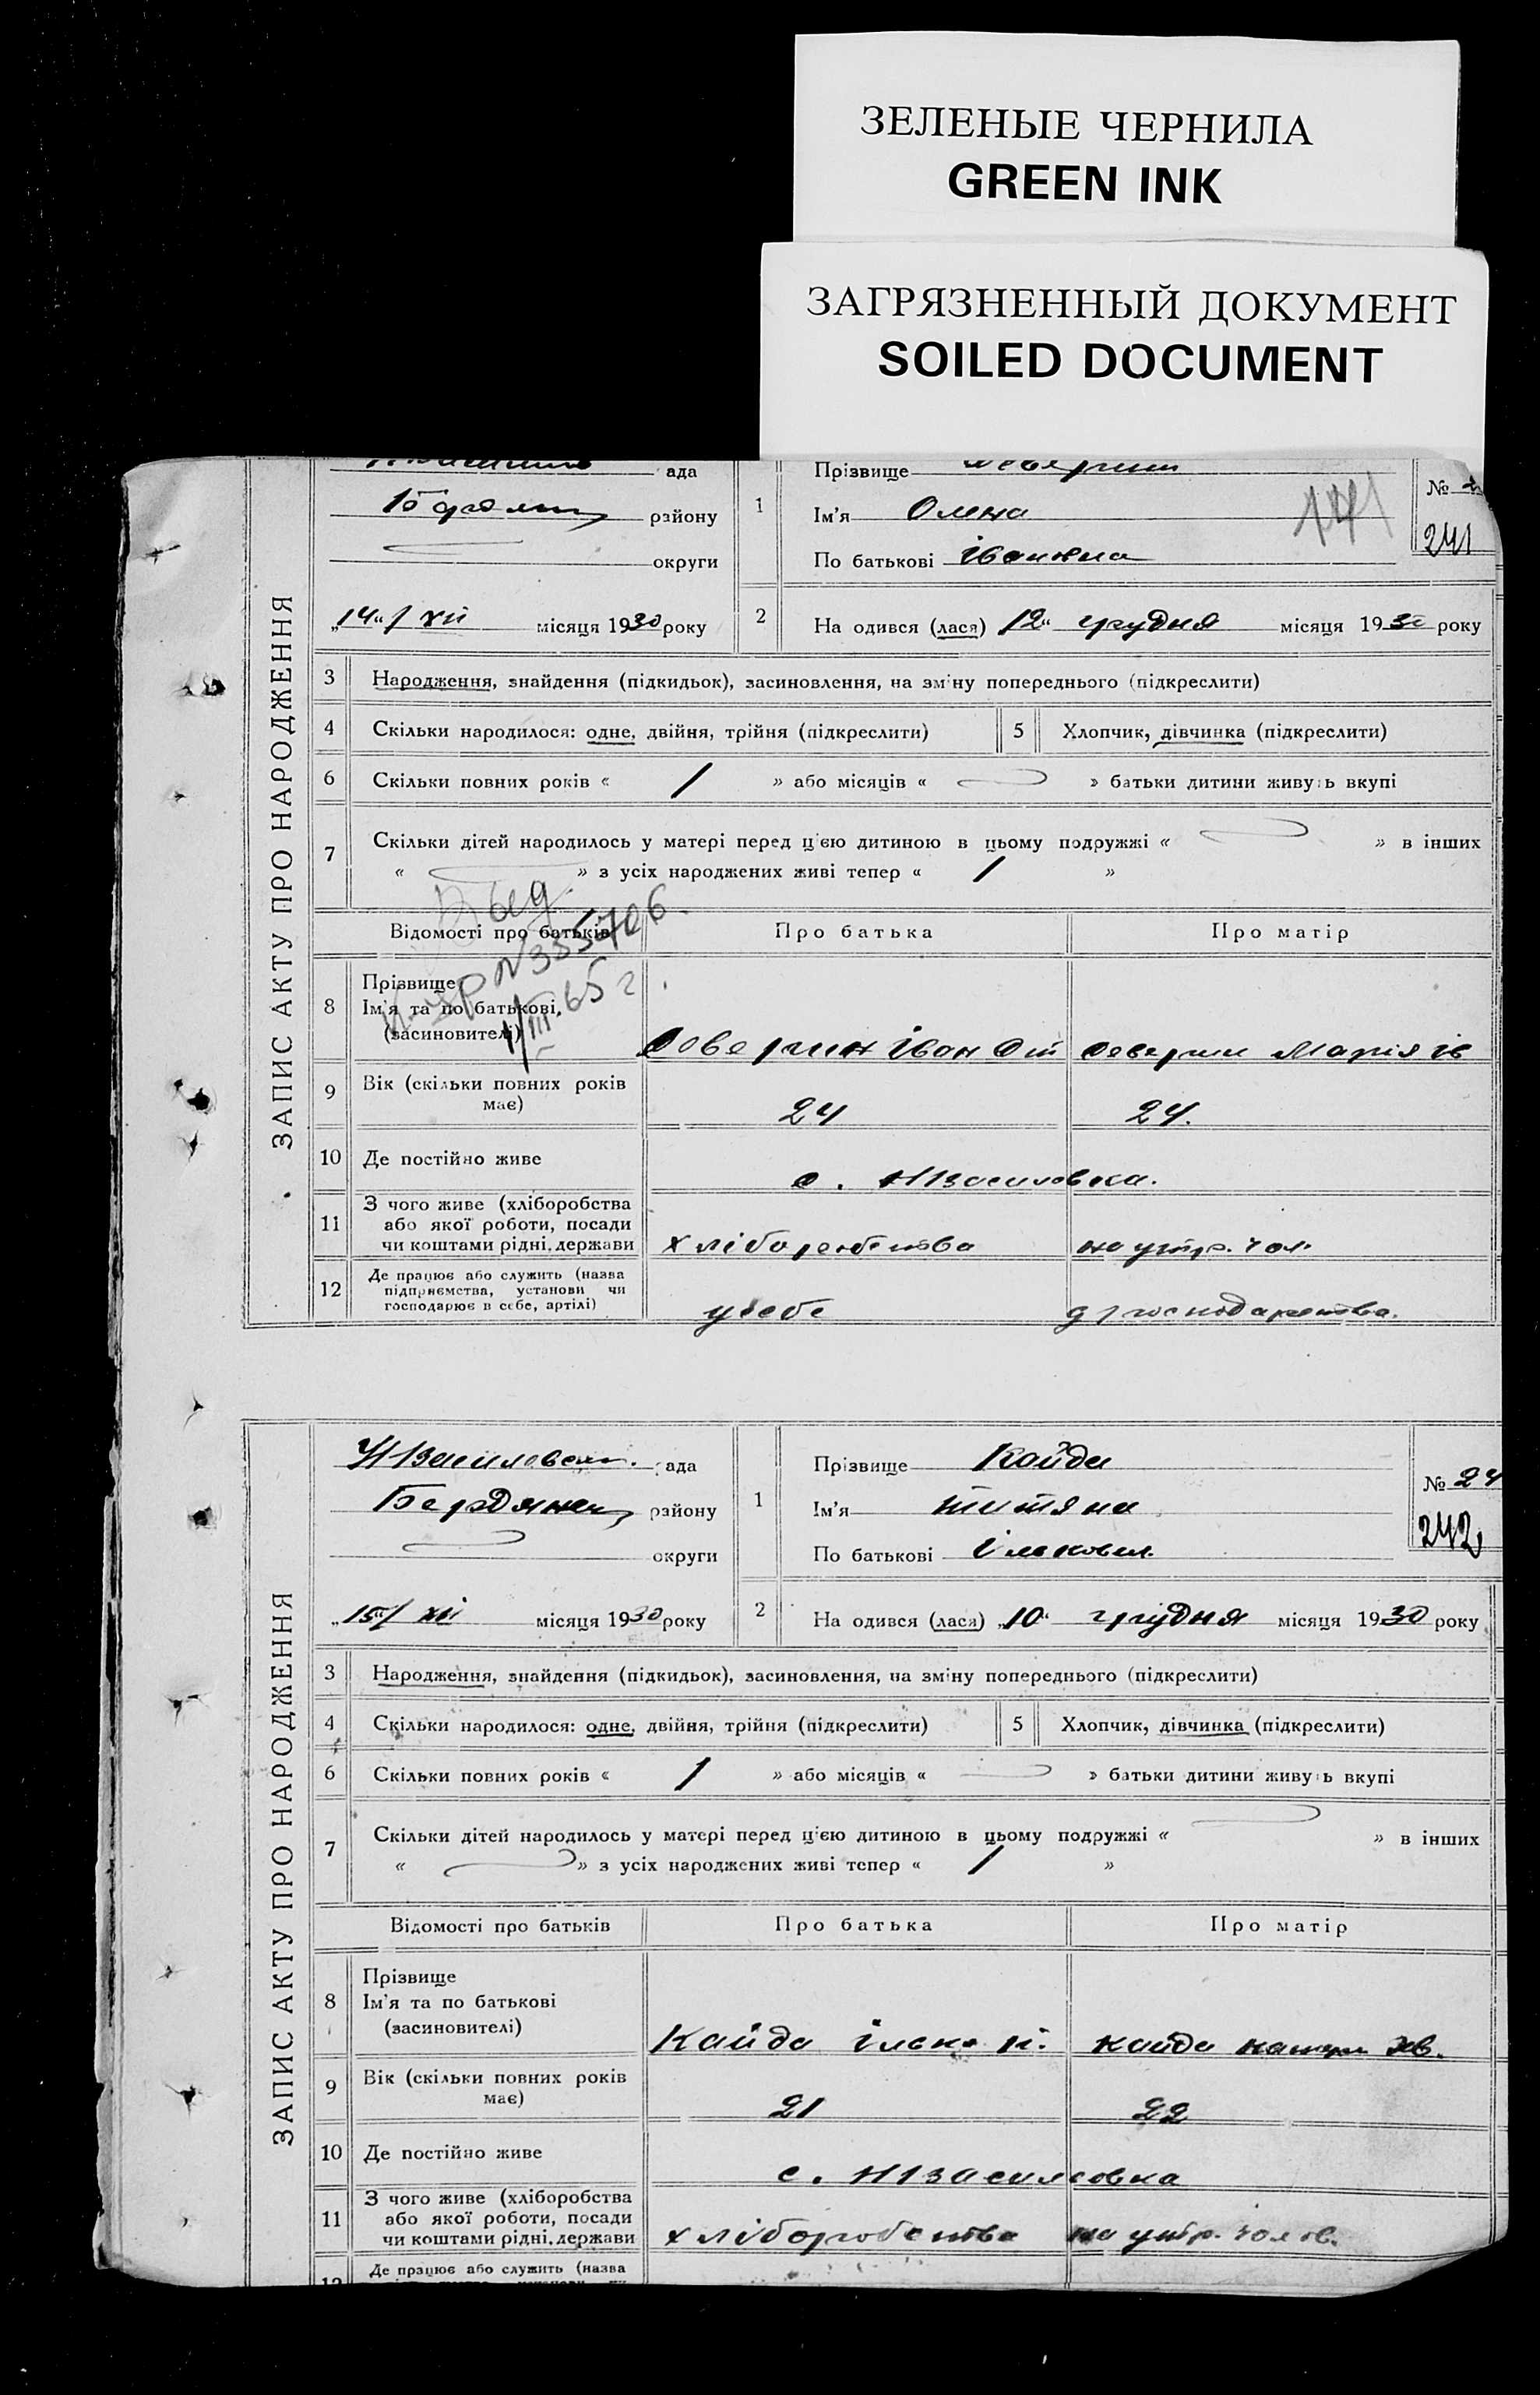 ЗЕЛЕНЫЕ ЧЕРНИЛА
GREEN INK
ЗАГРЯЗНЕННЫЙ ДОКУМЕНТ
SOILED DOCUMENT
ЗАПИС АКТУ ПРО НАРОДЖЕННЯ
ада
району
округи
„14“/XII місяця 1930 року
1 Прізвище
Ім'я Олена
По батькові Іванівна
141
№ 2
241
2 На одився (лася) 12“ грудня місяця 1930 року
3 Народження, знайдення (підкидьок), засиновлення, на зміну попереднього (підкреслити)
4 Скільки народилося: одне, двійня, трійня (підкреслити) 5 Хлопчик, дівчинка (підкреслити)
6 Скільки повних років « 1 » або місяців « » батьки дитини живуть вкупі
7 Скільки дітей народилось у матері перед цією дитиною в цьому подружжі « » в інших
« » з усіх народжених живі тепер « 1 »
Выд.
№335706.
1/III-65 г
Відомості про батьків Про батька Про матір
8 Прізвище
Ім'я та по батькові
(засиновителі)
Іван Марія Ів
9 Вік (скільки повних років
має) 24 24.
10 Де постійно живе
с. НВасиловка.
11 З чого живе (хліборобства
або якої роботи, посади
чи коштами рідні, держави хліборобства на утр. чол.
12 Де працює або служить (назва
підприємства, установи чи
господарює в себе, артілі) у себе д/господарства.
ЗАПИС АКТУ ПРО НАРОДЖЕННЯ
НВасиловськ. ада
Бердянськ району
округи
„15“/XII місяця 1930 року
1 Прізвище Кайда
Ім'я Титяна
По батькові
№ 24
242
2 На одився (лася) „10“ грудня місяця 1930 року
3 Народження, знайдення (підкидьок), засиновлення, на зміну попереднього (підкреслити)
4 Скільки народилося: одне, двійня, трійня (підкреслити) 5 Хлопчик, дівчинка (підкреслити)
6 Скільки повних років « 1 » або місяців « » батьки дитини живуть вкупі
7 Скільки дітей народилось у матері перед цією дитиною в цьому подружжі « » в інших
« » з усіх народжених живі тепер « 1 »
Відомості про батьків Про батька Про матір
8 Прізвище
Ім'я та по батькові
(засиновителі)
Кайда Ілько Кайда
9 Вік (скільки повних років
має) 21 22
10 Де постійно живе
с. НВасиловка
11 З чого живе (хліборобства
або якої роботи, посади
чи коштами рідні, держави хліборобства на утр. чолов.
12 Де працює або служить (назва